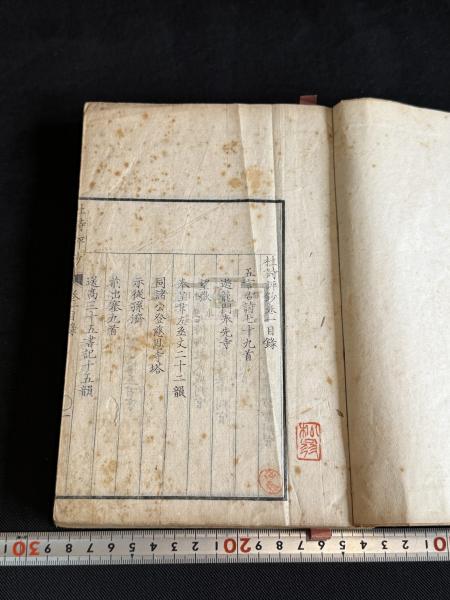 杜詩評鈔卷一目錄
五言古詩七十九首
遊龍門奉先寺
望嶽
奉贈韋左丞丈二十二韻
同諸公登慈恩寺塔
示從孫濟
前出塞九首
送高三十五書記十五韻
30 9 8 7 6 5 4 3 2 1 20 9 8 7 6 5 4 3 2 1 10 9 8 7